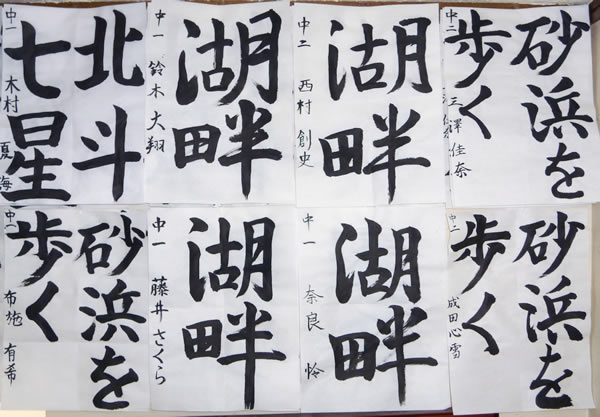 北斗
七星
中一 木村 夏海
湖畔
中一 鈴木 大翔
湖畔
中三 西村 創史
砂浜を
歩く
中二 三澤 佳奈
砂浜を
歩く
布施 有希
湖畔
中一 藤井 さくら
湖畔
中一 奈良 怜
砂浜を
歩く
中二 成田心雪